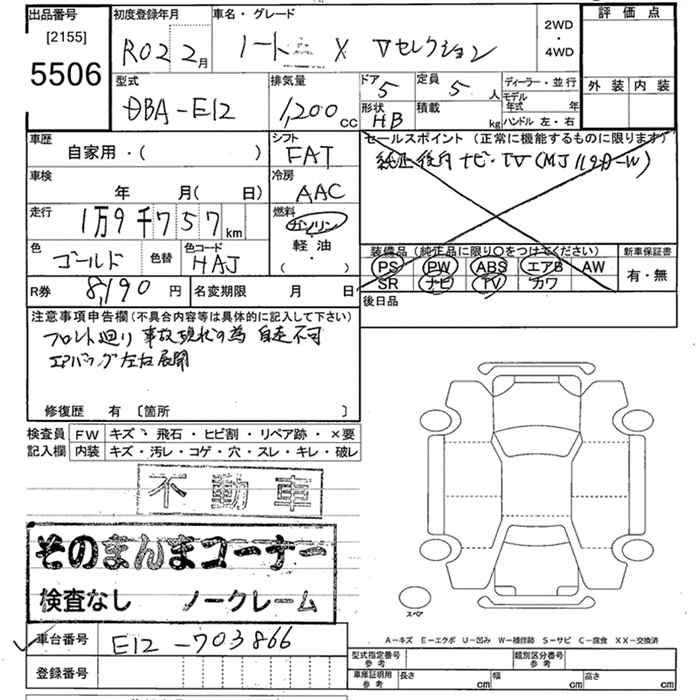 出品番号
[2155]
5506
初度登録年月
R02 2月
車名・グレード
ノート X Vセレクション
2WD
・
4WD
評価点
外装 内装
型式
DBA-E12
排気量
1,200 cc
ドア 5
形状 HB
定員 5 人
積載 kg
ディーラー・並行
モデル年式 年
ハンドル 左・右
車歴
自家用・( )
シフト
FAT
車検
年 月( 日)
冷房
AAC
走行
1万9千757km
燃料
ガソリン
軽・油
( ・ )
色
ゴールド
色替
色コード
HAJ
R券 8,190 円
名変期限 月 日
セールスポイント(正常に機能するものに限ります)
純正後付ナビ・TV(MJ119D-W)
装備品(純正品に限り○をつけてください)
PS PW ABS エアB AW
SR ナビ TV カワ
新車保証書
有・無
後日品
注意事項申告欄(不具合内容等は具体的に記入して下さい)
フロント廻り事故現状の為 自走不可
エアバッグ左右展開
修復歴 有 [箇所 ]
検査員記入欄
FW キズ・飛石・ヒビ割・リペア跡・×要
内装 キズ・汚レ・コゲ・穴・スレ・キレ・破レ
不動車
そのまんまコーナー
検査なし ノークレーム
スペア
車台番号 E12-703866
登録番号
A-キズ E-エクボ U-凹み W-補修跡 S-サビ C-腐食 XX-交換済
型式指定番号 参考
類別区分番号 参考
車庫証明用 参考
長さ cm 幅 cm 高さ cm